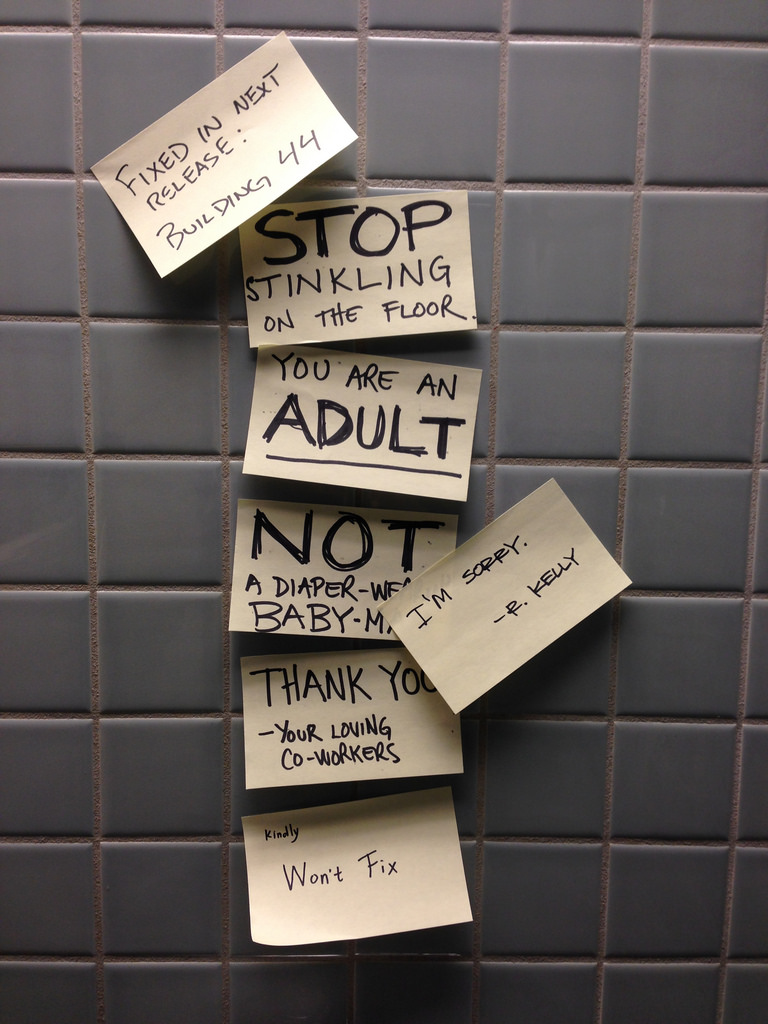 FIXED IN NEXT
RELEASE:
BUILDING 44
STOP
STINKLING
ON THE FLOOR.
YOU ARE AN
ADULT
NOT
A DIAPER-WEA
BABY-MA
I'M SORRY.
-R. KELLY
THANK YOU
-YOUR LOVING
CO-WORKERS
Kindly
Won't Fix